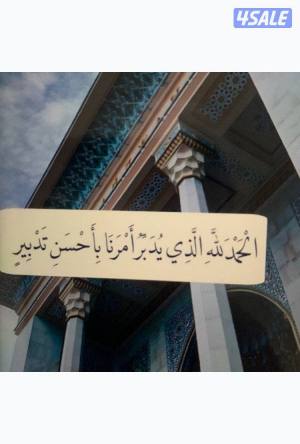 4SALE
الْحَمْدُ لِلَّهِ الَّذِي يُدَبِّرُ أَمْرَنَا بِأَحْسَنِ تَدْبِيرٍ